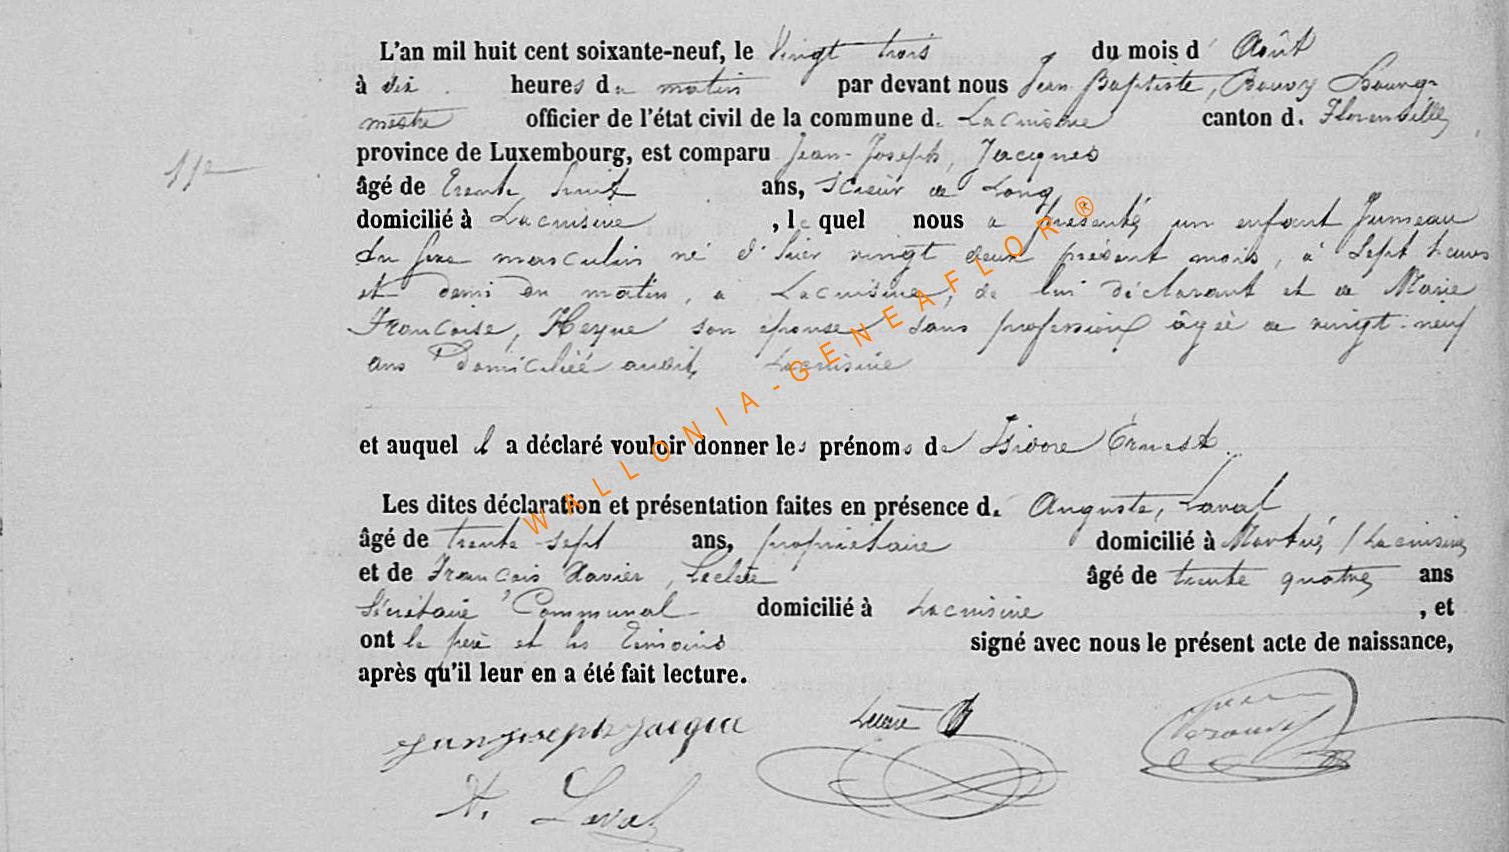 L'an mil huit cent soixante-neuf, le vingt trois du mois d' Août
à dix heures du matin par devant nous Jean Baptiste, Bouvy Bourg-
mestre officier de l'état civil de la commune d. Lacuisine canton d. Florenville
province de Luxembourg, est comparu Jean-Joseph, Jacques
âgé de trente huit ans, Scieur de Long
domicilié à Lacuisine , le quel nous a présenté un enfant Jumeau
du sexe masculin né d'hier vingt deux présent mois, à Sept heures
et demi du matin, à Lacuisine, de lui déclarant et de Marie
Françoise, son épouse sans profession âgée de vingt-neuf
ans Domiciliée audit Lacuisine
et auquel il a déclaré vouloir donner les prénoms de Isidore Ernest
Les dites déclaration et présentation faites en présence d. Auguste, Laval
âgé de trente sept ans, propriétaire domicilié à Martué / Lacuisine
et de François Xavier, âgé de trente quatre ans
Sécrétaire Communal domicilié à Lacuisine , et
ont le père et les témoins signé avec nous le présent acte de naissance,
après qu'il leur en a été fait lecture.
Jean Joseph Jacques
A. Laval
WALLONIA-GENEAFLOR®